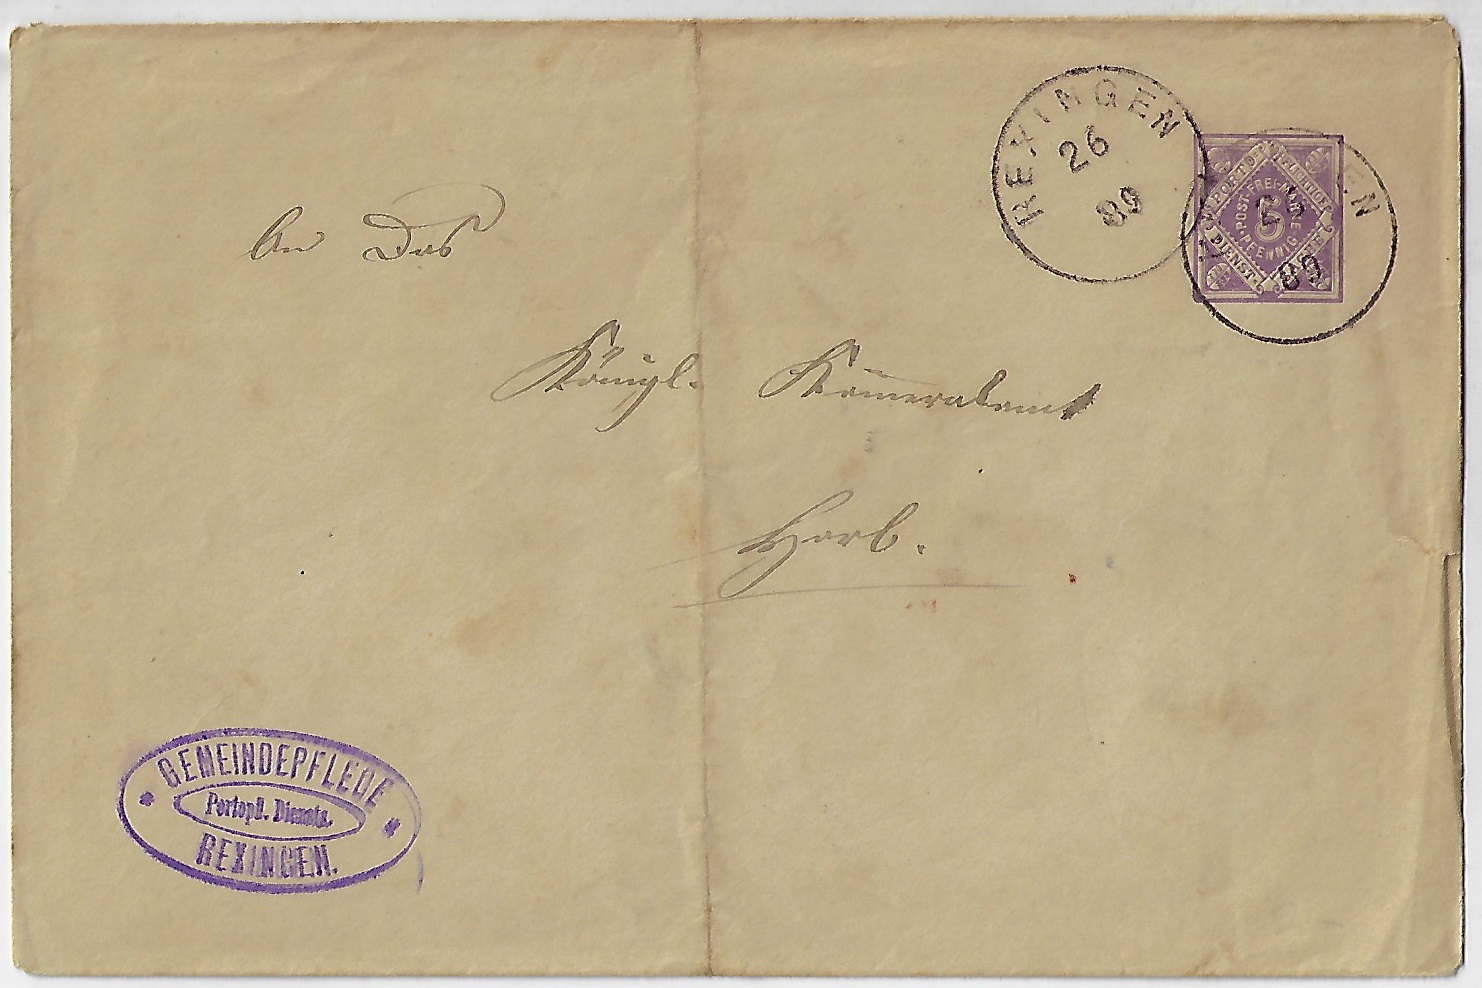 REXINGEN
26
89
REXINGEN
26
89
PORTOPFL. GEMEINDE
DIENST-
POST-FREI-MARKE
5
PFENNIG
An Das
Königl. Kameralamt
Horb.
GEMEINDEPFLEGE
Portopfl. Diensts.
REXINGEN.